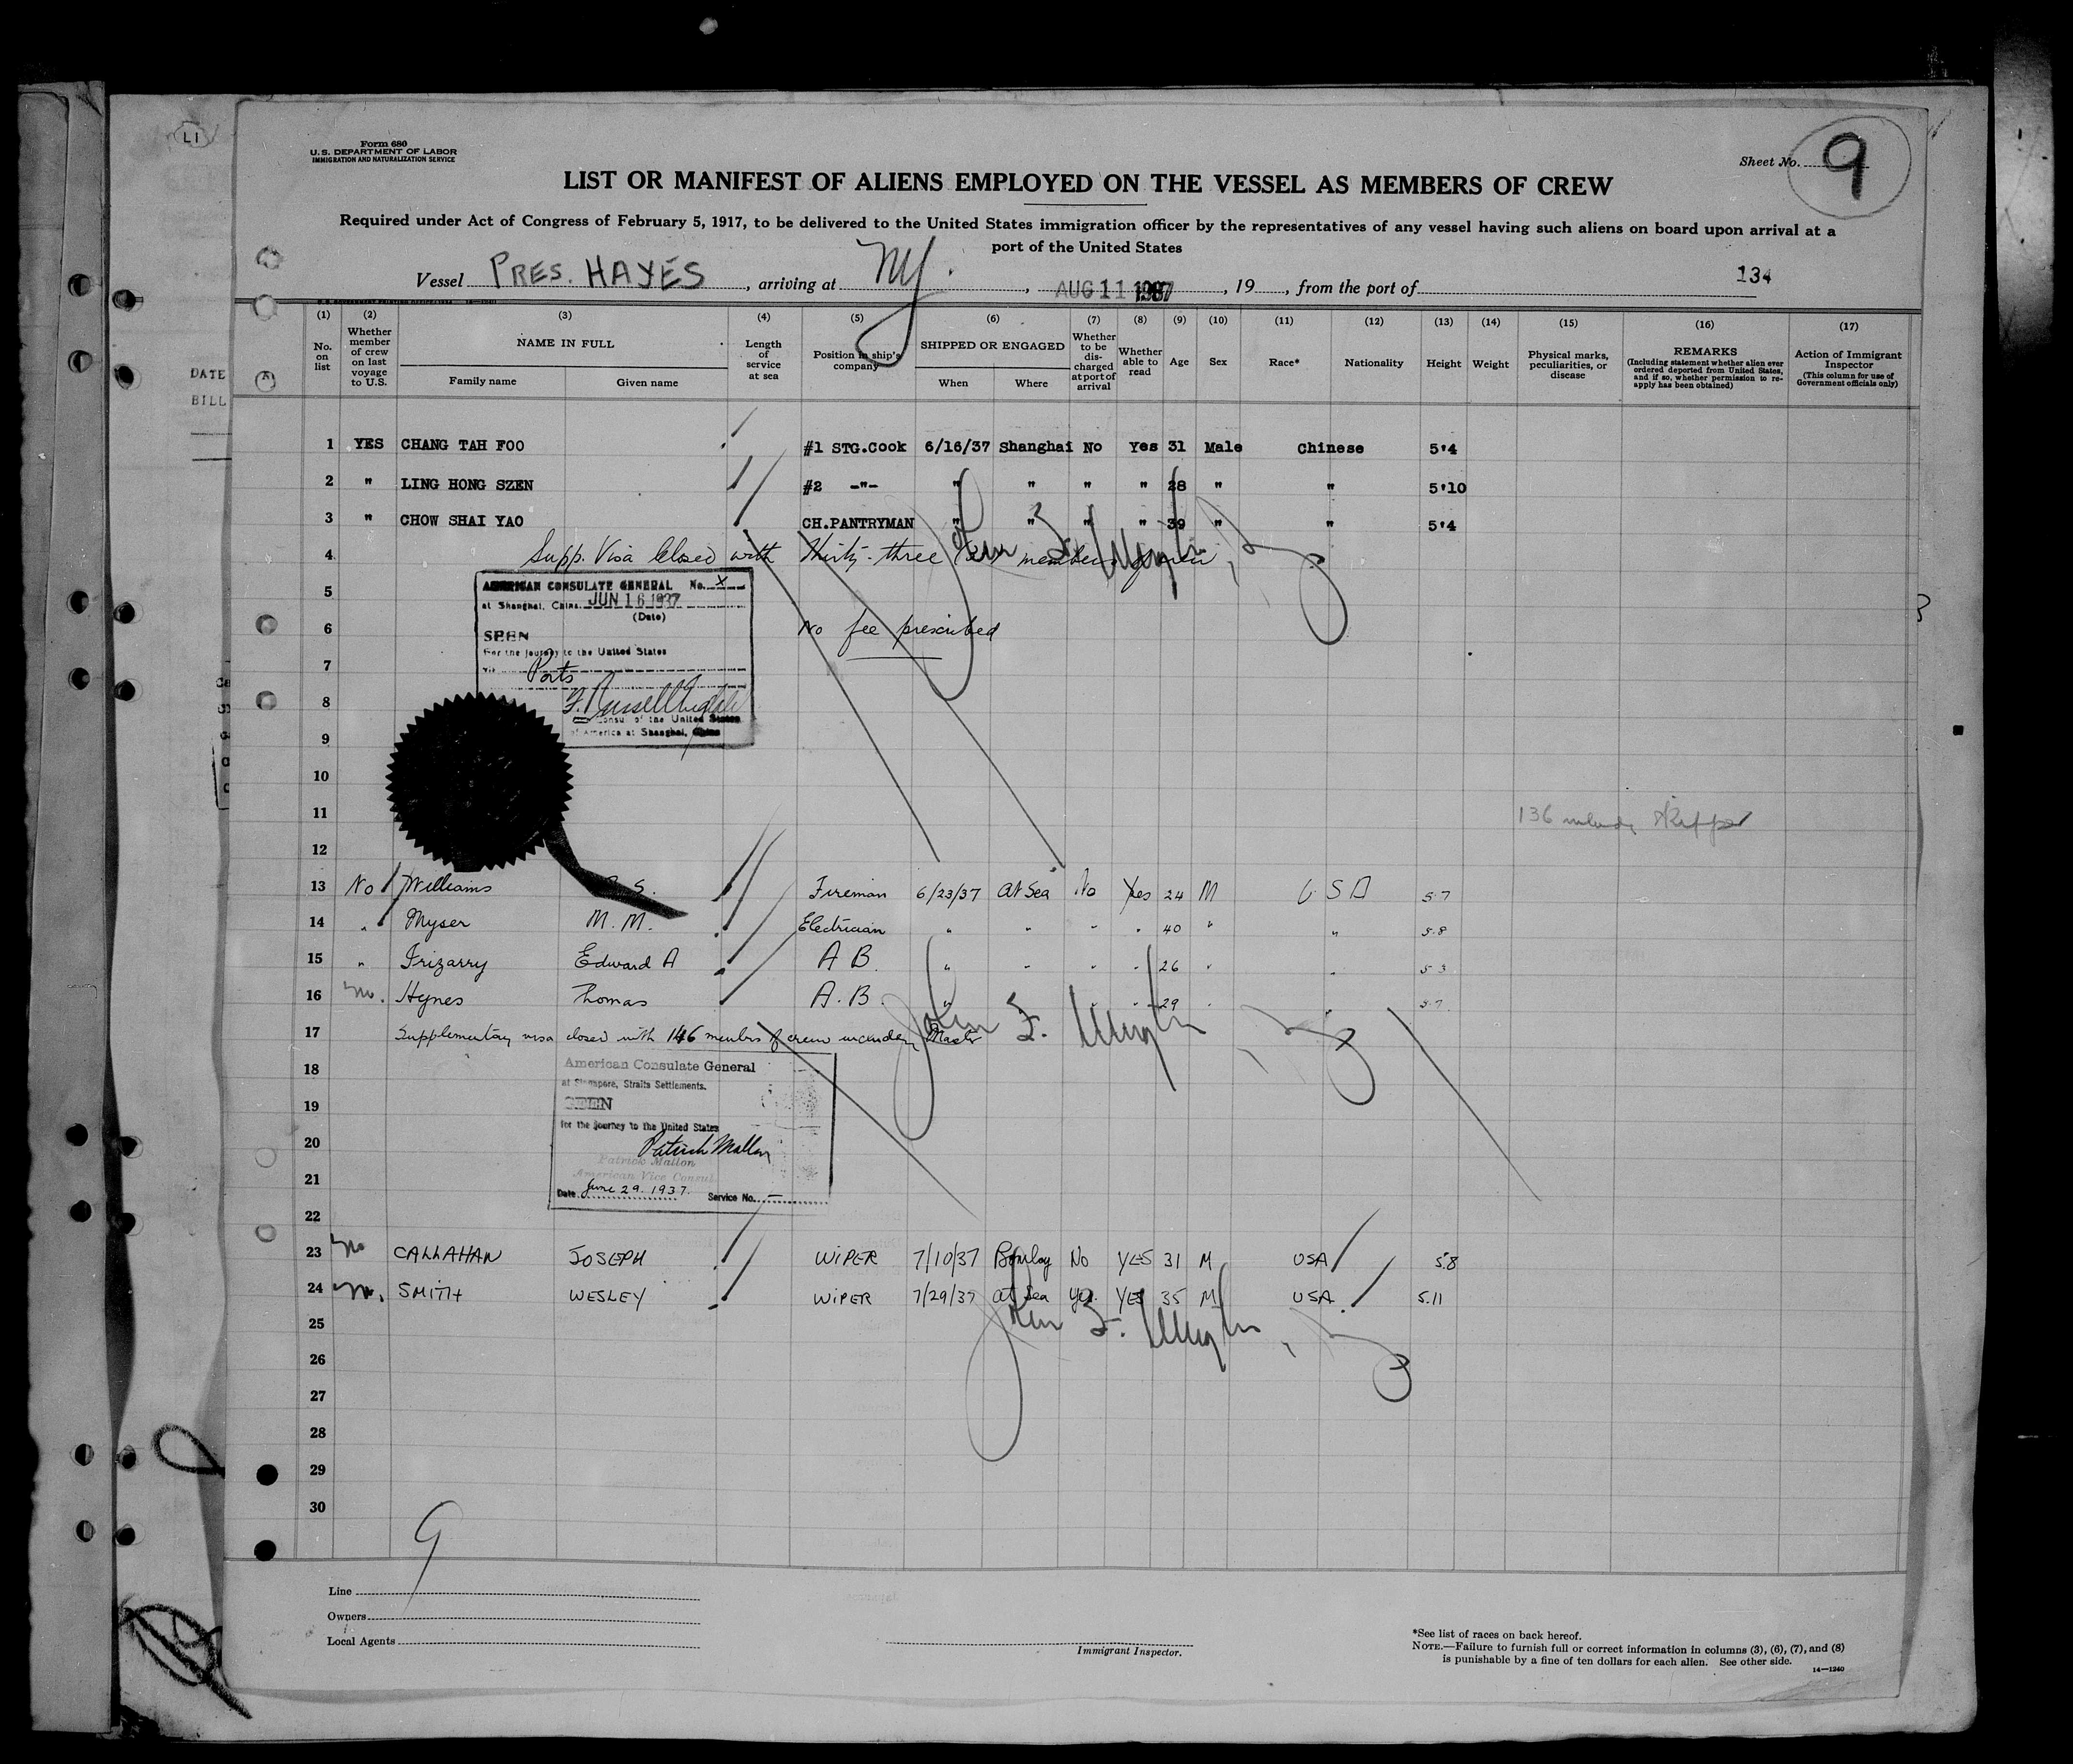 L1
Form 680
U.S. DEPARTMENT OF LABOR
IMMIGRATION AND NATURALIZATION SERVICE
Sheet No. 9
LIST OR MANIFEST OF ALIENS EMPLOYED ON THE VESSEL AS MEMBERS OF CREW
Required under Act of Congress of February 5, 1917, to be delivered to the United States immigration officer by the representatives of any vessel having such aliens on board upon arrival at a
port of the United States
134
Vessel PRES. HAYES, arriving at NY., AUG 11 1937, 19, from the port of
(1) (2) (3) (4) (5) (6) (7) (8) (9) (10) (11) (12) (13) (14) (15) (16) (17)
No. on list
Whether member of crew on last voyage to U.S.
NAME IN FULL
Family name Given name
Length of service at sea
Position in ship's company
SHIPPED OR ENGAGED
When Where
Whether to be discharged at port of arrival
Whether able to read
Age
Sex
Race*
Nationality
Height
Weight
Physical marks, peculiarities, or disease
REMARKS
(Including statement whether alien ever ordered deported from United States, and if so, whether permission to reapply has been obtained)
Action of Immigrant Inspector
(This column for use of Government officials only)
DATE
BILL
1 YES CHANG TAH FOO #1 STG.Cook 6/16/37 Shanghai No Yes 31 Male Chinese 5'4
2 " LING HONG SZEN #2 -"- " " " " 28 " " 5'10
3 " CHOW SHAI YAO CH.PANTRYMAN " " " " 39 " " 5'4
4 Supp. Visa closed with thirty-three members of crew
5
AMERICAN CONSULATE GENERAL No. X
at Shanghai, China. JUN 16 1937
(Date)
6 No fee prescribed
SEEN
For the journey to the United States
7
via Ports
8
Consul of the United States
of America at Shanghai, China
9
10
11 136 Skipper
12
13 No Williams S. Fireman 6/23/37 At Sea No Yes 24 M USA 5.7
14 " Myser M. M. Electrician " " " " 40 " " 5.8
15 " Irizarry Edward A A B. " " " " 26 " " 5.3
16 No. Hynes Thomas A. B. " " " 29 " " 5.7
17 Supplementary visa closed with 146 members of crew including Master
John F.
18
American Consulate General
at Singapore, Straits Settlements.
19
SEEN
for the journey to the United States
20
Patrick Mallon
Patrick Mallon
21
American Vice Consul
Date June 29. 1937. Service No. —
22
23 No CALLAHAN JOSEPH WIPER 7/10/37 Bombay No YES 31 M USA 5.8
24 No. SMITH WESLEY WIPER 7/29/37 at Sea Yes. YES 35 M USA. 5.11
25
26
27
28
29
30
9
Line
Owners
Local Agents
Immigrant Inspector.
*See list of races on back hereof.
NOTE.—Failure to furnish full or correct information in columns (3), (6), (7), and (8)
is punishable by a fine of ten dollars for each alien. See other side.
14—1240